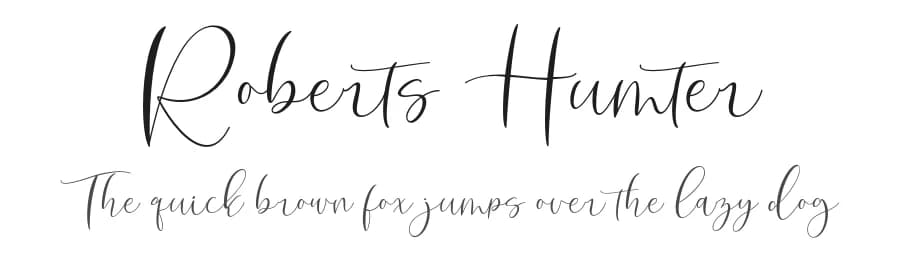 Roberts Humter
The quick brown fox jumps over the lazy dog